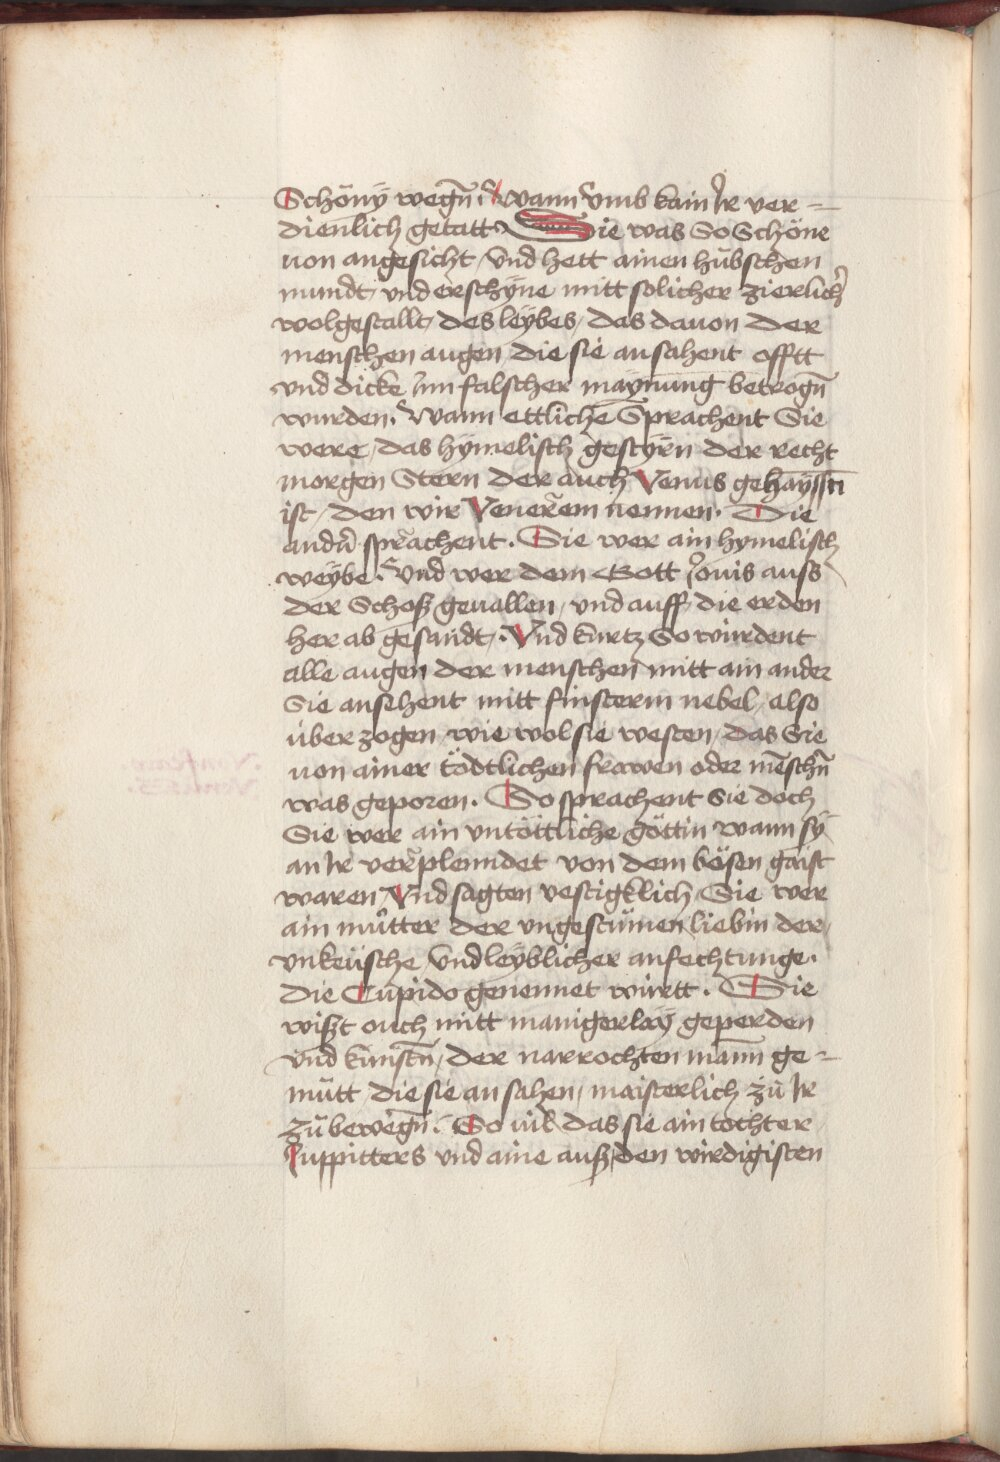 Schöny wegn̄. Wann vmb kain Ir ver-
dienlich getatt Sie was So Schöne
uon angesicht, vnd hett ainen hübschen
mundt, vnd erschyne mitt solicher zierlich̛
wolgestallt, des leÿbes, das dauon der
menschen augen, die sie ansahent offtt
vnd dicke Inn falscher maÿnung betrogn̄
wurden. Wann ettliche Sprachent Sie
were, das hÿmelisch gestyrn der recht
morgen Stern der auch Venus gehaÿssn̄
ist, den wir Venerem nennen. Die
andn̄ sprachent. Sie wer ain hymelisch
weÿbe. Vnd wer dem Gott Iouis auss
der Schoß geuallen, vnd auff die erden
her ab gesandt. Vnd kurtz So würdent
alle augen der menschen mitt ain ander
Sie ansehent mitt finsterm nebel, also
über zogen, wie wol sie westen, das Sie
uon ainer tödtlichen frawen oder mēschn̄
was geporen. So sprachent sie doch
Sie wer ain vntöttliche göttin wann sÿ
an Ir verplenndet von dem bösen gaist
waren, Vnd sagten vestigklich, Sie wer
ain mütter der vngestümen liebin der
vnkeüsche, vnd leÿblicher anfechtunge.
die Cupido genennet württ. Sie
wißt ouch mitt manigerlaÿ geperden
vnd künstn̄, der narrochten mann ge-
mütt, die sie an sahen, maisterlich zü Ir
zü bewegn̄. So uil das sie ain tochter
Iuppitters vnd aine auß den wirdigisten